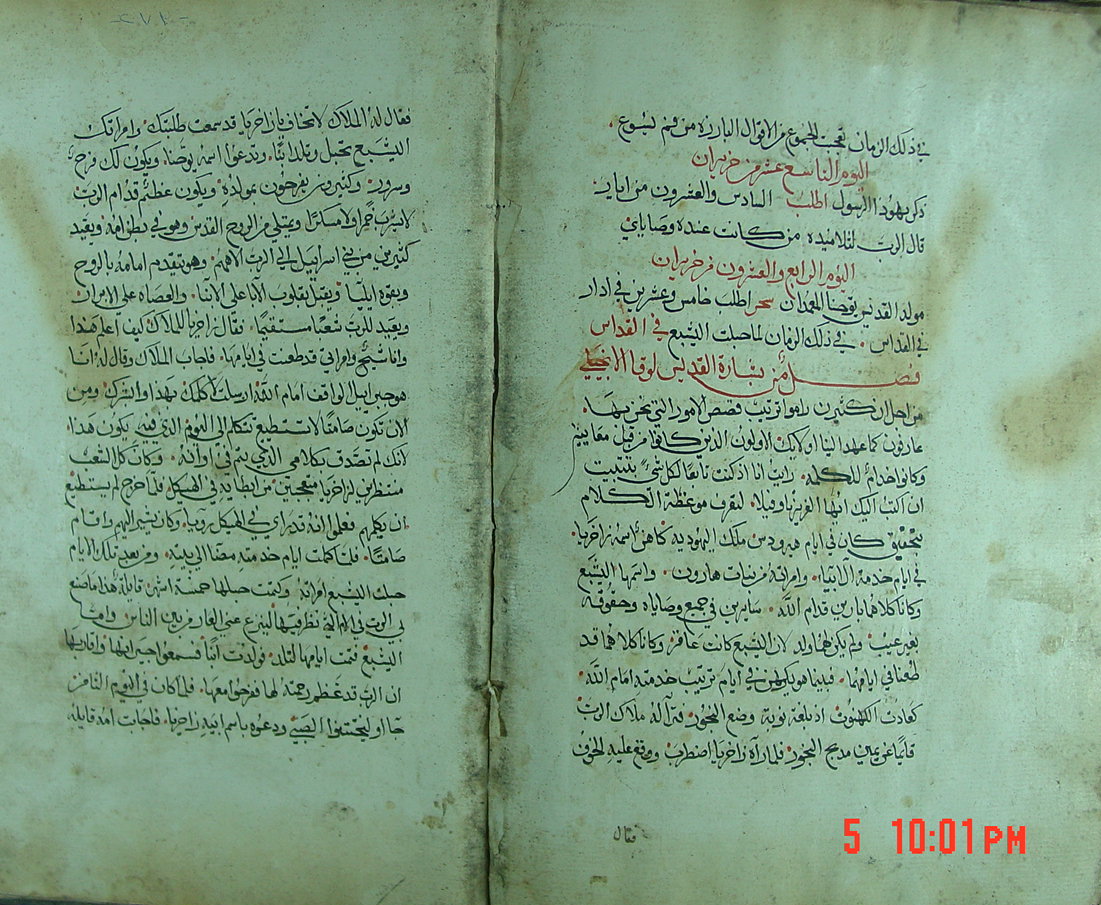 في ذلك الزمان تعجب الجموع من الاقوال البارزه من فم يسوع .
اليوم التاسع عشر من حزيران
ذكر يهودا الرسول اطلب السادس والعشرون من ايار
قال الرب لتلاميذه من كانت عنده وصاياي
اليوم الرابع والعشرون من حزيران
مولد القديس يوحنا المعمدان سحر اطلب خامس وعشرين في ادار
في القداس . في ذلك الزمان لما حبلت اليشبع في القداس
فصل من بشارة القديس لوقا الانجيلي
من اجل ان كثيرين راموا ترتيب قصص الامور التي نحن بها .
عارفون كما عهد الينا اولايك الاولون الذين كانوا من قبل معاينين
وكانوا خداماً للكلمه . رايت انا اذ كنت تابعاً لكل شي بتثبيت
ان اكتب اليك ايها العزيز تاوفيلا . لتعرف موعظة الكلام
بتحقيق كان في ايام هيرودس ملك اليهوديه كاهن اسمه زاخريا .
في ايام خدمة ال ابيا . وامراته من بنات هارون . واسمها اليشبع
وكانا كلاهما بارين قدام الله . سايرين في جميع وصاياه وحقوقه
بغير عيب . ولم يكن لهما ولد لان اليشبع كانت عاقر وكانا كلاهما قد
طعنا في ايامهما . فبينما هو يكهن في ايام ترتيب خدمته امام الله .
كعادت الكهنوت اذ بلغة نوبة وضع البخور . فترآله ملاك الرب
قايماً عن يمين مدبح البخور فلما رآه زاخريا اضطرب ووقع عليه الخوف
فقال
فقال له الملاك لا تخاف يا زاخريا قد سمعت طلبتك . وامراتك
اليشبع تحبل وتلد ابناً . وتدعوا اسمه يوحنا . ويكون لك فرح
وسرور . وكثيرون يفرحون بمولده . ويكون عظيم قدام الرب
لا يشرب خمراً ولا مسكراً ويمتلي من الروح القدس وهو في بطن امه . ويعيد
كثيرين من بني اسراييل الي الرب الاههم . وهو يتقدم امامه بالروح
وبقوه ايليا . ويقبل بقلوب الابا علي الابنا . والعصاه علي الابرار
ويعيد للرب شعباً مستقيماً . فقال زاخريا للملاك كيف اعلم هذا
وانا شيخ وامراتي قد طعنت في ايامها . فاجاب الملاك وقال له انا
هو جبراييل الواقف امام الله ارسلت لاكلمك بهذا وابشرك . ومن
الان تكون صامتاً لا تستطيع تتكلم الي اليوم الذي فيه يكون هذا
لانك لم تصدق بكلامي الذي يتم في اوانه . وكان كل الشعب
منتظرين لزاخريا متعجبين من ابطايه في الهيكل فلما خرج لم يستطيع
ان يكلمهم فعلموا انه قد راي في الهيكل رويا . وكان يشير اليهم واقام
صامتاً . فلما كملت ايام خدمته مضا الي بيته . ومن بعد تلك الايام
حبلت اليشبع امراته وكتمت حبلها خمسة اشهر قايلة هذا ما صنع
بي الرب في الايام التي نظر فيها لينزع عني العار من بين الناس . واما
اليشبع فتمت ايامها لتلد . فولدت ابناً فسمعوا جيرانها واقاربها
ان الرب قد عظم رحمته لها ففرحوا معها . فلما كان في اليوم الثامن
جااو ليختنوا الصبي ودعوه باسم ابيه زاخريا . فاجابت امه قايله
5 10:01PM